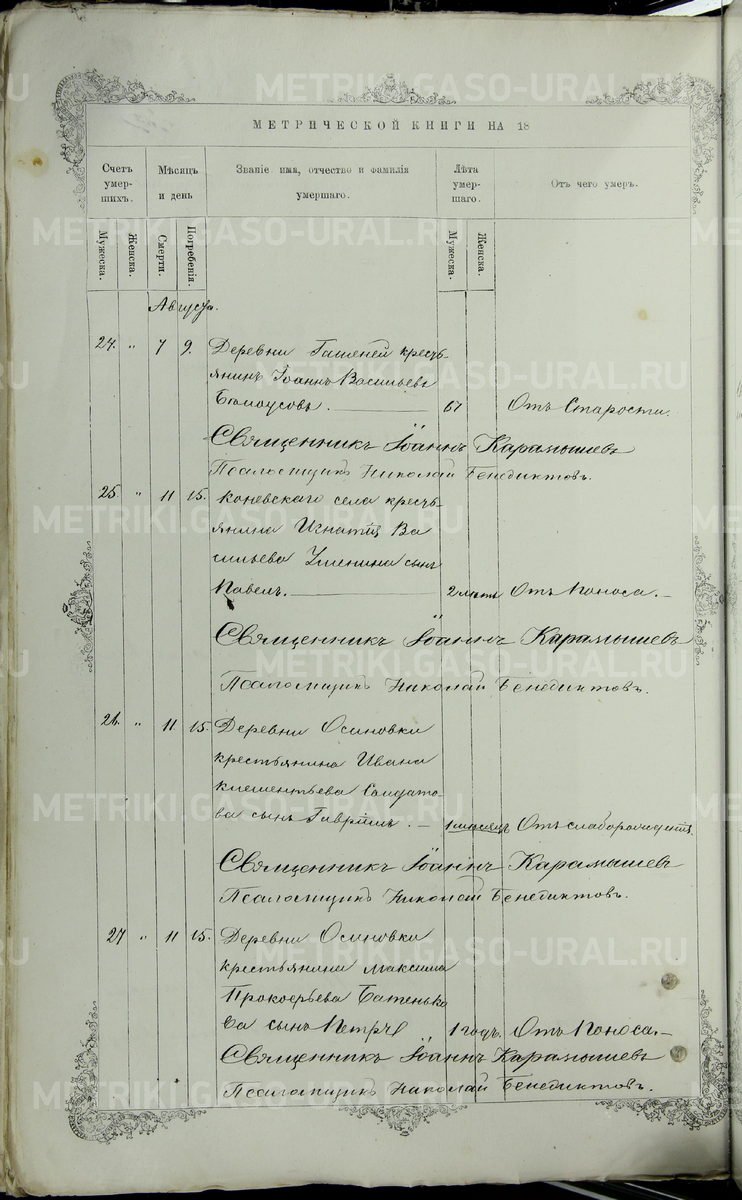 МЕТРИЧЕСКОЙ КНИГИ НА 18
Счетъ умер-шихъ.
Мѣсяцъ и день
Званіе имя, отчество и фамилія умершаго.
Лѣта умер-шаго.
Отъ чего умеръ.
Мужеска. Женска. Смерти. Погребенія. Мужеска. Женска.
Августъ.
24. " 7 9. Деревни кресть-
янинъ Іоаннъ Васильевъ
Бѣлоусовъ. 67 Отъ Старости.
Священникъ Іоаннъ Карамышевъ
Псаломщикъ Николай Бенедиктовъ.
25. " 11 15. Коневскаго села кресть-
янина Игнатія Ва
сильева сынъ
Павелъ. 2 лѣтъ Отъ Поноса.
Священникъ Іоаннъ Карамышевъ
Псаломщикъ Николай Бенедиктовъ.
26. " 11 15. Деревни Осиновки
крестьянина Ивана
Климентьева Солдато-
ва сынъ Гавріилъ. 1 мѣсяцъ Отъ
Священникъ Іоаннъ Карамышевъ
Псаломщикъ Николай Бенедиктовъ.
27 " 11 15. Деревни Осиновки
крестьянина Максима
Прокофьева Батенько
ва сынъ Петръ 1 годъ. Отъ Поноса.
Священникъ Іоаннъ Карамышевъ
Псаломщикъ Николай Бенедиктовъ.
METRIKI.GASO-URAL.RU